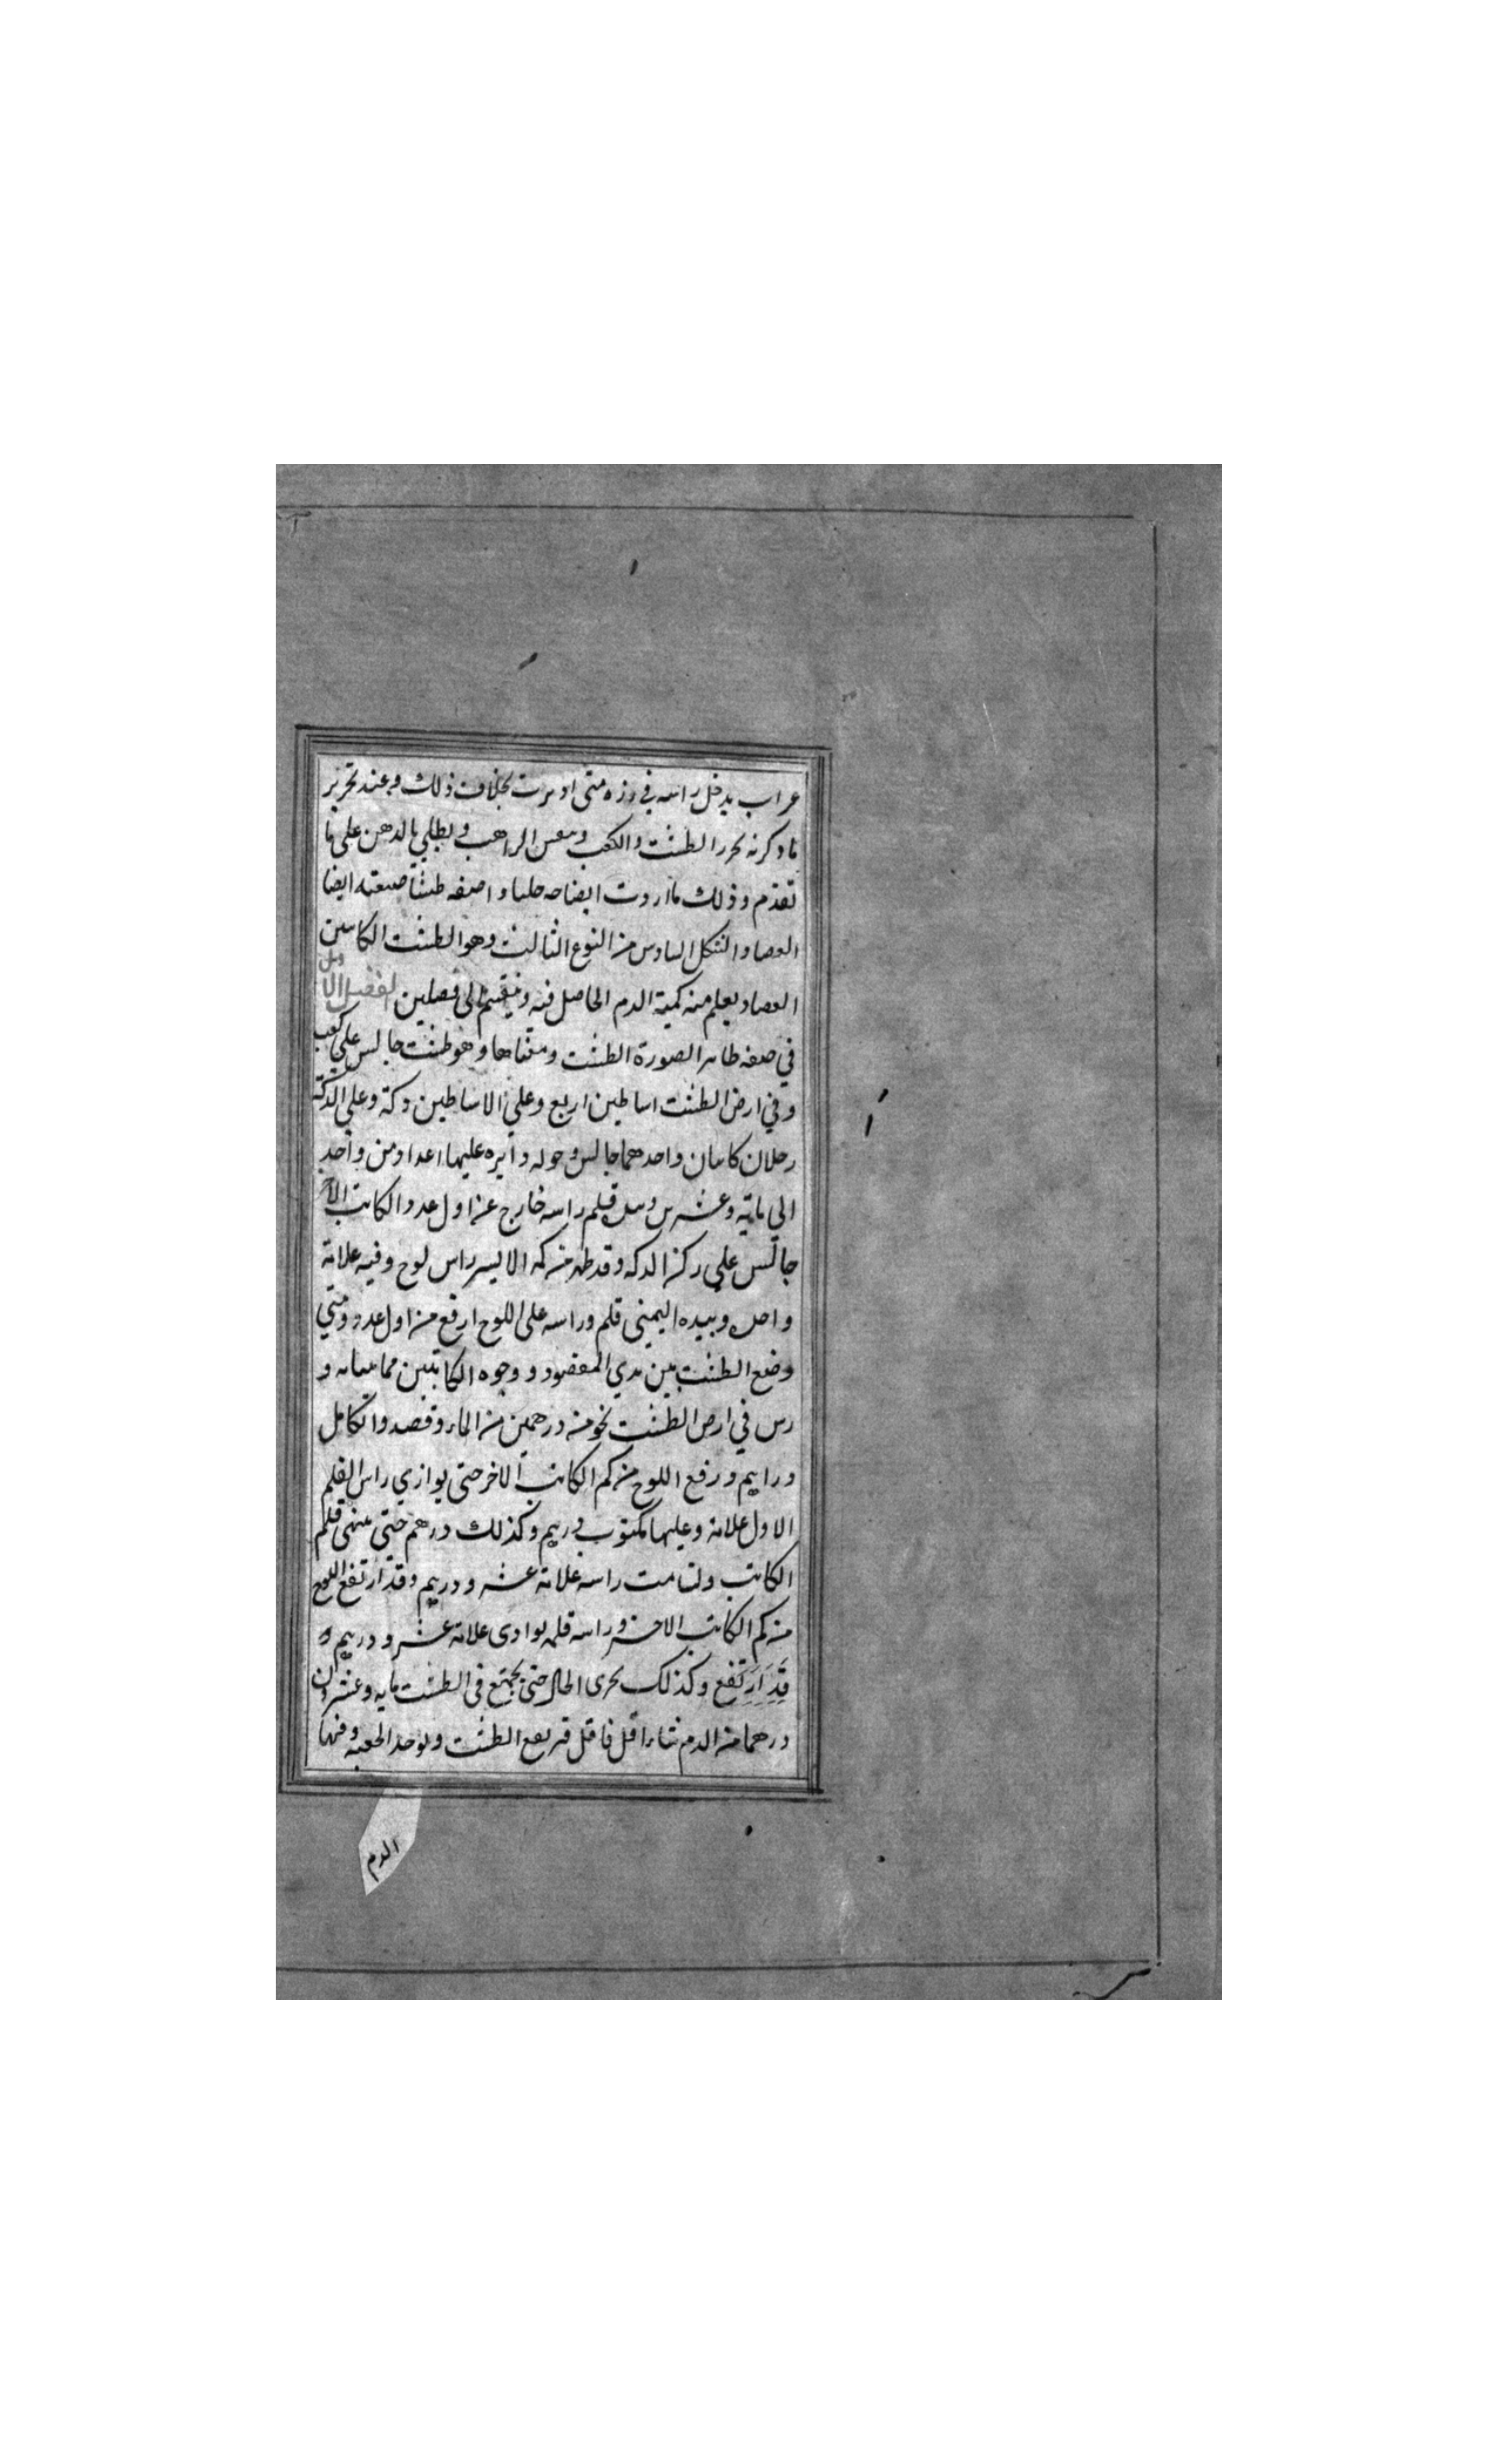 عراب يدخل راسه في رزه متى اديرت بخلاف ذلك وعند تحرير
ما ذكرته يحرر الطشت والكعب ومعس الراهب ويطلي بالدهن على ما
تقدم وذلك ما اردت ايضاحه جليا واصفه طشتا صنعته ايضا
الفصاد الشكل السادس من النوع الثالث وهو الطشت الكاتبين
الفصاد يعلم منه كمية الدم الحاصل فيه وينقسم الى فصلين الفصل الاول
في صفه ظاهر الصورة الطشت ومعناها وهو طشت جالس علي كعب
وفي ارض الطشت اساطين اربع وعلي الاساطين دكة وعلي الدكة
رجلان كاتبان واحدهما جالس وحوله دايره عليها اعداد من واحد
الي ماية وعشرين وبيده قلم راسه خارج عن اول عدد والكاتب الاخر
جالس علي ركن الدكه وقد ظهر من كمه الايسر راس لوح وفيه علامة
واحده وبيده اليمنى قلم وراسه على اللوح ارفع من اول عدد ومتي
وضع الطشت بين يدي المفصود ووجوه الكاتبين مما يقابله و
رس في ارض الطشت نحو منه درهمين من الماء وفصد والكامل
دراهم ورفع اللوح من كم الكاتب الاخر حتى يوازي راس القلم
الاول علامة وعليها مكتوب درهم وكذلك درهم حتى ينتهى قلم
الكاتب ولسامت راسه علامة عشرو درهم وقد ارتفع اللوح
من كم الكاتب الاخر وراسه قلمه يوازى علامة عشرو درهم و
قد ارتفع وكذلك يجرى الحال حتى يجتمع في الطشت مايه وعشرون
درهما من الدم شاء اقل فاقل فيرفع الطشت ويوخذ الجعبه وفيها
الدم